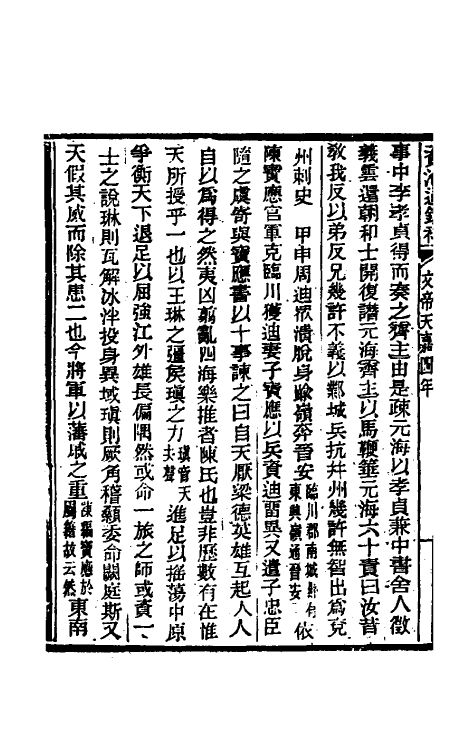 資治通鑑補 文帝天嘉四年
事中李孝貞得而奏之齊主由是疎元海以孝貞兼中書舍人徵
義雲還朝和士開復譖元海齊主以馬鞭箠元海六十責曰汝昔
敎我反以弟反兄幾許不義以鄴城兵抗幷州幾許無智出爲兗
州刺史 甲申周迪衆潰脫身踰嶺奔晉安臨川郡南城縣有東興嶺通晉安依
陳寶應官軍克臨川獲迪妻子寶應以兵資迪留異又遣子忠臣
隨之虞寄與寶應書以十事諫之曰自天厭梁德英雄互起人人
自以爲得之然夷凶翦亂四海樂推者陳氏也豈非歷數有在惟
天所授乎一也以王琳之彊侯瑱之力瑱音天去聲進足以搖蕩中原
爭衡天下退足以屈強江外雄長偏隅然或命一旅之師或資一
士之說琳則瓦解冰泮投身異域瑱則厥角稽顙委命闕庭斯又
天假其威而除其患二也今將軍以藩戚之重陳編寶應於屬籍故云然東南